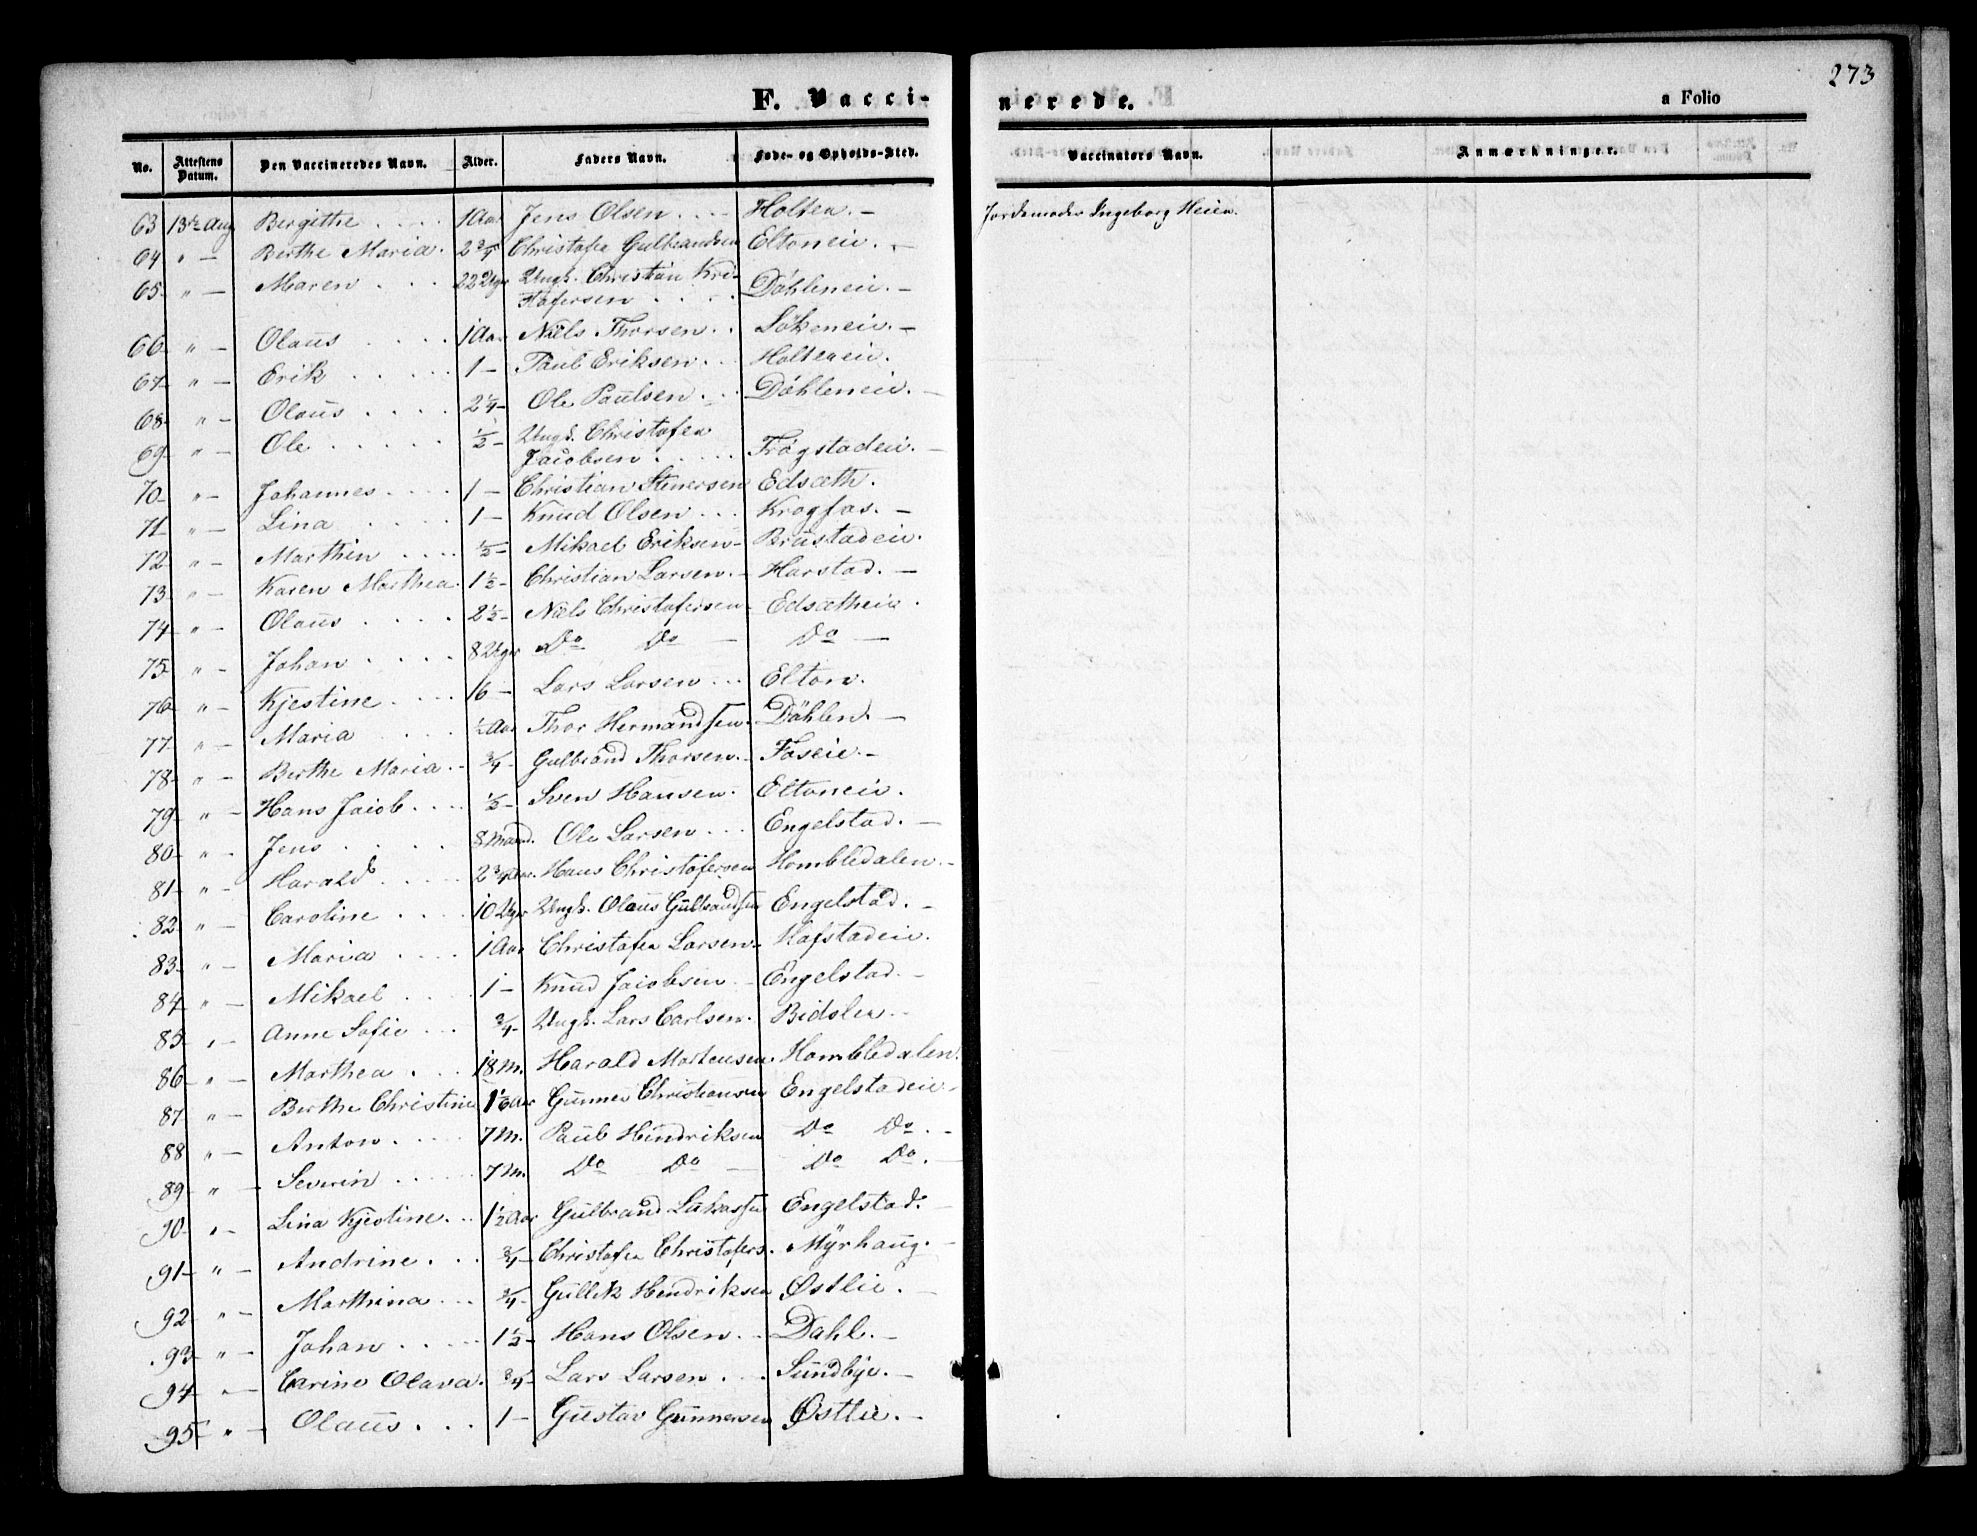 273
F. Vacci-
nerede.
a Folio
No. Attestens Datum. Den Vaccineredes Navn. Alder. Faders Navn. Føde- og Opholds-Sted. Vaccinators Navn. Anmærkninger.
63 13de Aug Bergithe .... 1 Aar Jens Olsen .... Holten. — Jordemoder Ingeborg Heier.
64 " — Berthe Maria. 2 3/4 Christofer Gulbrandsen Eltoneie. —
65 " — Maren .... 22 Uger Ungk. Christian Kri-
stofersen .... Döhleneie. —
66 " — Olaus .... 1 Aar Niels Thorsen .. Lökeneie. —
67 " — Erik .... 1 — Paul Eriksen .. Holteneie.
68 " — Olaus .... 2 1/4 — Ole Paulsen ... Döhleneie. —
69 " — Ole .... 1/2 — Ungk. Christofer
Jacobsen .... Frögstadeie. —
70 " — Johannes .... 1 — Christian Stenersen Edsæth.
71 " — Lina .... 1 — Knud Olsen ... Krogfos. —
72 " — Marthin .... 1/2 — Mikael Eriksen — Brustadeie.
73 " — Karen Marthea. 1 1/2 — Christian Larsen. — Harstad. —
74 " — Olaus .... 2 1/2 — Niels Christofersen Edsætheie.
75 " — Johan .... 8 Uger Do Do — Do —
76 " — Kjestine .... 16 — Lars Larsen ... Elton.
77 " — Maria .... 1/2 Aar Thor Hermandsen. Döhlen. —
78 " — Berthe Maria. 3/4 — Gulbrand Thorsen. Foseie. —
79 " — Hans Jacob .... 1/2 — Sven Hansen. Eltoneie.
80 " — Jens .... 8 Maand. Ole Larsen ... Engelstad. —
81 " — Harald .... 2 3/4 Aar. Hans Christofersen Hombledalen. —
82 " — Caroline .... 10 Uger Ungk. Olaus Gulbrandsen Engelstad. —
83 " — Maria .... 1 Aar Christofer Larsen. Hofstadeie.
84 " — Mikael .... 1 — Knud Jacobsen .. Engelstad. —
85 " — Anne Sofie ... 3/4 — Ungk. Lars Carlsen.
86 " — Marthea .... 18 M. Harald Mortensen. Hombledalen.
87 " — Berthe Christine Gunnes Christiansen Engelstadeie —
88 " — Anton .... 7 M. Paul Hendriksen Do Do. —
89 " — Severin .... 7 M. Do Do — Do Do. —
90 " — Lina Kjestine. .. 1 1/2 Aar Gulbrand Lukassen Engelstad. —
91 " — Andrine ... 3/4 — Christofer Christofers. Myrhaug. —
92 " — Marthina ... 3/4 — Gullik Hendriksen Østlie. —
93 " — Johan .... 1 1/2 — Hans Olsen .. Dahl. —
94 " — Carine Olava. 3/4 — Lars Larsen ... Sundbye. —
95 " — Olaus .... 1 — Gustav Gunnersen Østlie. —